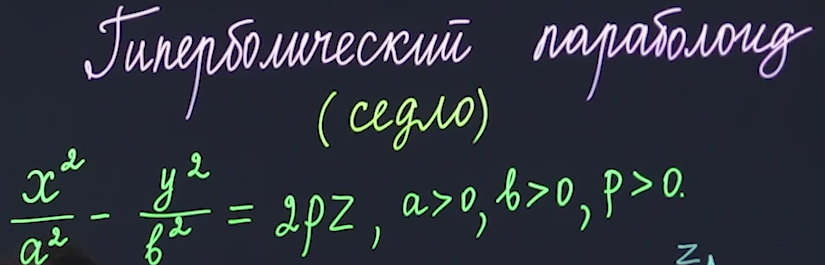 Гиперболический параболоид
(седло)
x²/a² - y²/b² = 2pz, a>0, b>0, p>0.
z